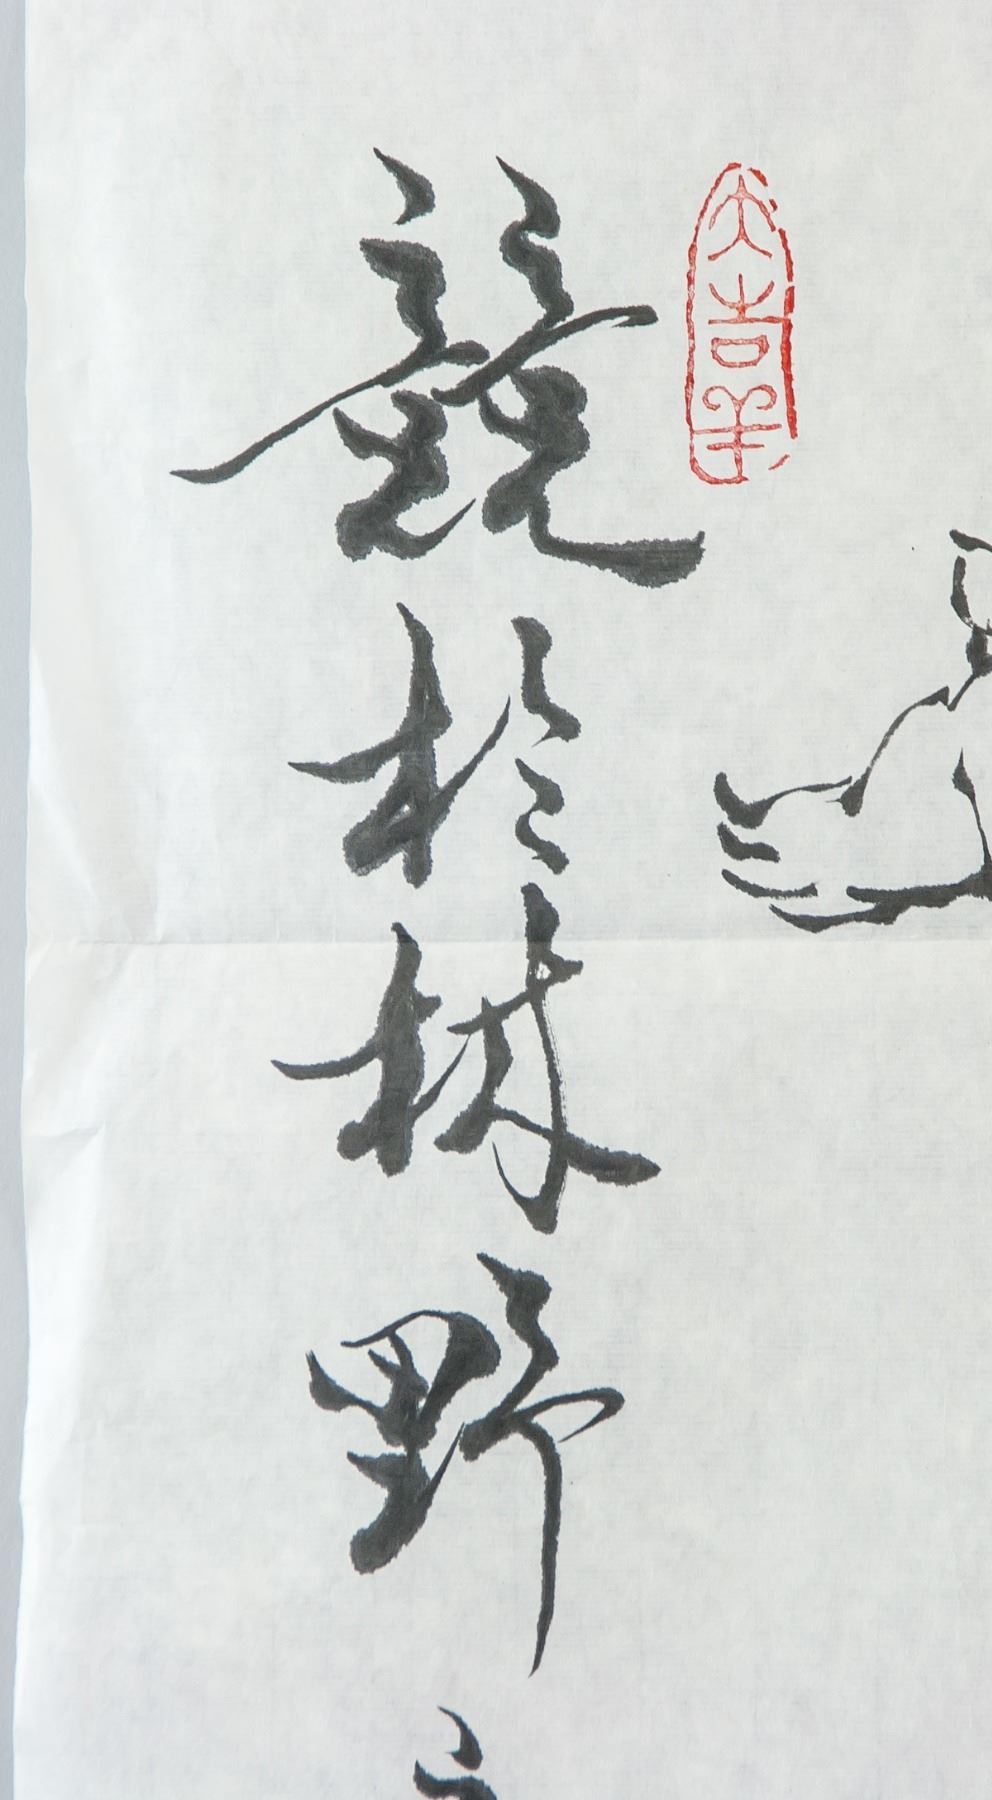 大吉羊
競於林野